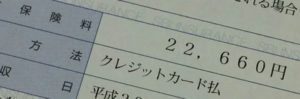 される場合
保険料
22,660円
方法
クレジットカード払
収日
平成2